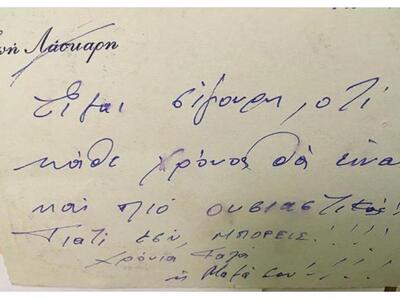 ωή Λάσκαρη
Είμαι σίγουρη, οτι
κάθε χρόνος θά είναι
και πιό ουσιαστικός!
Γιατί εσύ, μπορεις!!!!
Χρόνια Πολλά
η Μαμά σου!!!!